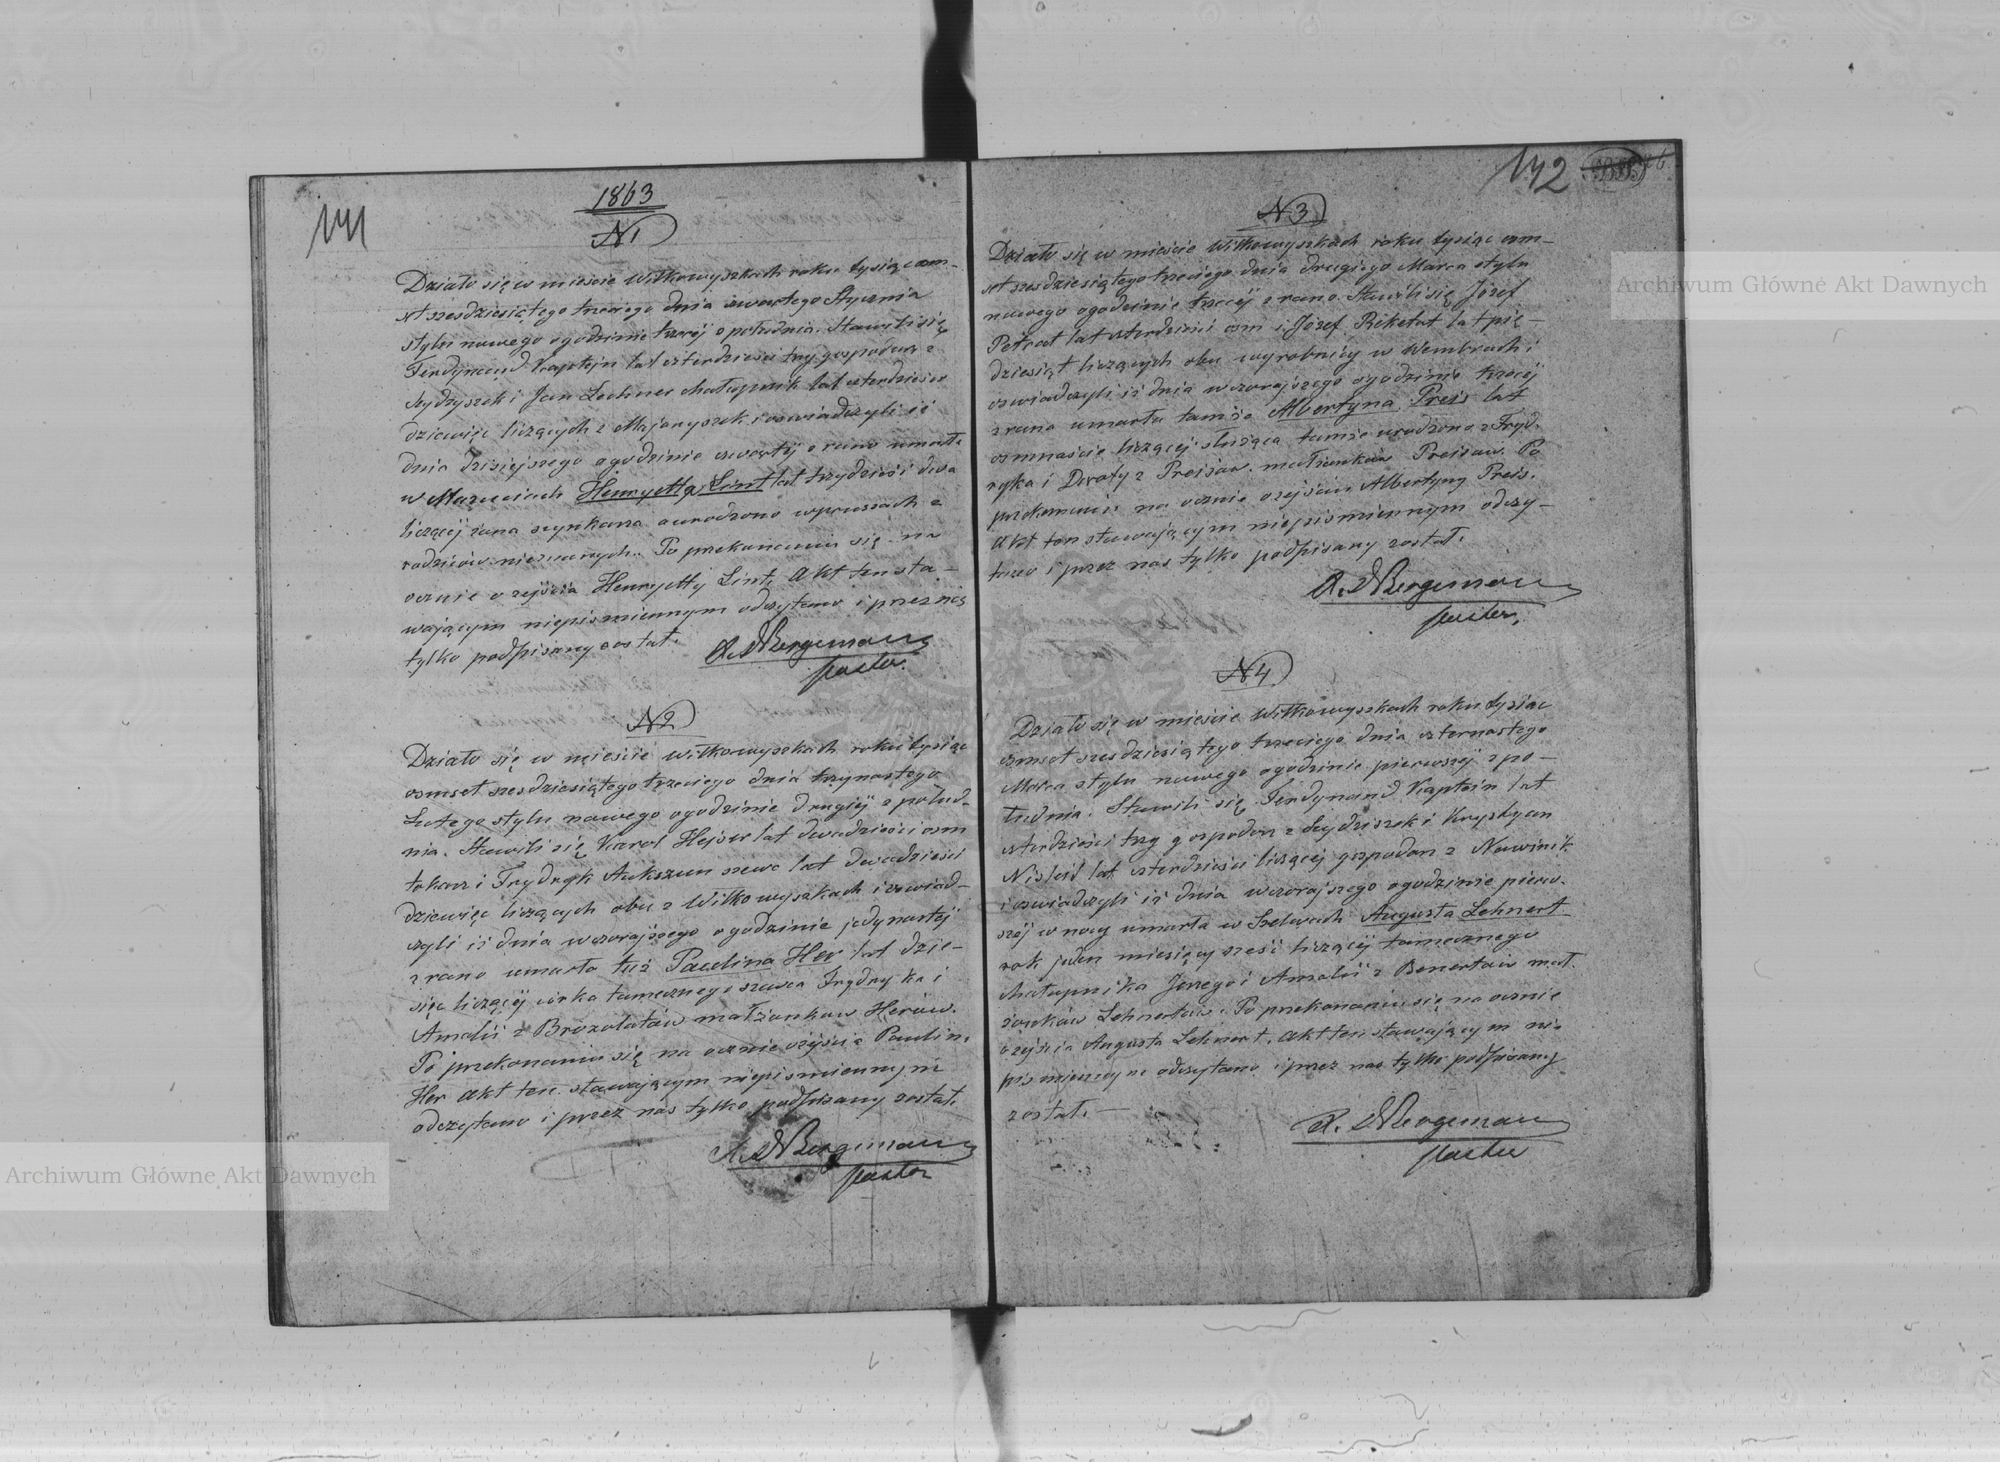 141
1863
N1
Działo się w mieście Wiłkowyszkach roku tysiąc ośm-
set szesdziesiątego trzeciego dnia czwartego Stycznia
stylu nowego ogodzinie trzeciej z południa. Stawili się
Ferdynand Kaptejn lat czterdzieści trzy gospodarz z
Szydzyszek i Jan Lechner chałupnik lat czterdzieści
dziewięc liczących z Majoryszek i oswiadczyli iż
dnia dzisiejszego ogodzinie czwartéj z rana umarła
w Henryetta Lint lat trzydzieści dwa
liczącéj żona szynkarza a urodzona wprussach z
rodziców nieznanych. Po przekonaniu się na
ocznie o zejściu Henryetty Lint, Akt ten sta-
wającym niepismiennym odczytano i przez nas
tylko podpisany został.
A. Bergeman
pastor.
N2
Działo się w mieście Wiłkowyszkach roku tysiąc
osmset szesdziesiątego trzeciego dnia trzynastego
Lutego stylu nowego ogodzinie drugiéj z połud-
nia. Stawili się Karol Hejser lat dwadzieścia osm
tokarz i Frydryk Aukszun szewc lat dwadzieścia
dziewięc liczących oba z Wiłkowyszkach i oswiad-
czyli iż dnia wczorajszego ogodzinie jedynastéj
z rana umarła tuż Paulina Her lat dzie-
sięc liczącéj córka tamecznego szewca Frydryka i
Amalii z Brozolatów małżonków Herów.
Po przekonaniu się na ocznie zejścia Pauliny
Her Akt ten stawającym niepismiennym
odczytano i przez nas tylko podpisany został.
A. Bergeman
pastor
142
N3
Działo się w mieście Wiłkowyszkach roku tysiąc ośm-
set szesdziesiątego trzeciego dnia drugiego Marca stylu
nowego ogodzinie trzeciéj z rana. Stawili się Józef
Petrat lat czterdzieści osm i Józef Rikelat lat pię-
dziesiąt liczących oba wyrobnicy w Wembrach i
oswiadczyli iż dnia wczorajszego ogodzinie trzeciéj
z rana umarła tamże Albertyna Preis lat
osmnaście liczącéj służąca tamże urodzona z Fryd-
ryka i Doroty z Preisów małżonków Preisów. Po
przekonaniu na ocznie zejściu Albertyny Preis.
Akt ten stawającym niepismiennym odczy-
tano i przez nas tylko podpisany został.
A. Bergeman
pastor.
N4
Działo się w mieście Wiłkowyszkach roku tysiąc
osmset szesdziesiątego trzeciego dnia czternastego
Marca stylu nowego ogodzinie pierwszéj z po-
łudnia. Stawili się Ferdynand Kaptein lat
czterdzieści trzy gospodarz z Szydziszek i Krystyan
lat czterdzieści liczącéj gospodarz z Nawinik
i oswiadczyli iż dnia wczorajszego ogodzinie pierw-
széj w nocy umarła w Szelwach Augusta Lehnert
rok jeden miesięcy sześć liczącéj tamecznego
chałupnika Jerzego i Amalii z Benertów mał-
żonków Lehnertów. Po przekonaniu się na ocznie
zejścia Augusta Lehnert, Akt ten stawającym nie
pismiennym odczytano i przez nas tylko podpisany
został. —
A. Bergeman
pastor
Archiwum Główne Akt Dawnych
Archiwum Główne Akt Dawnych